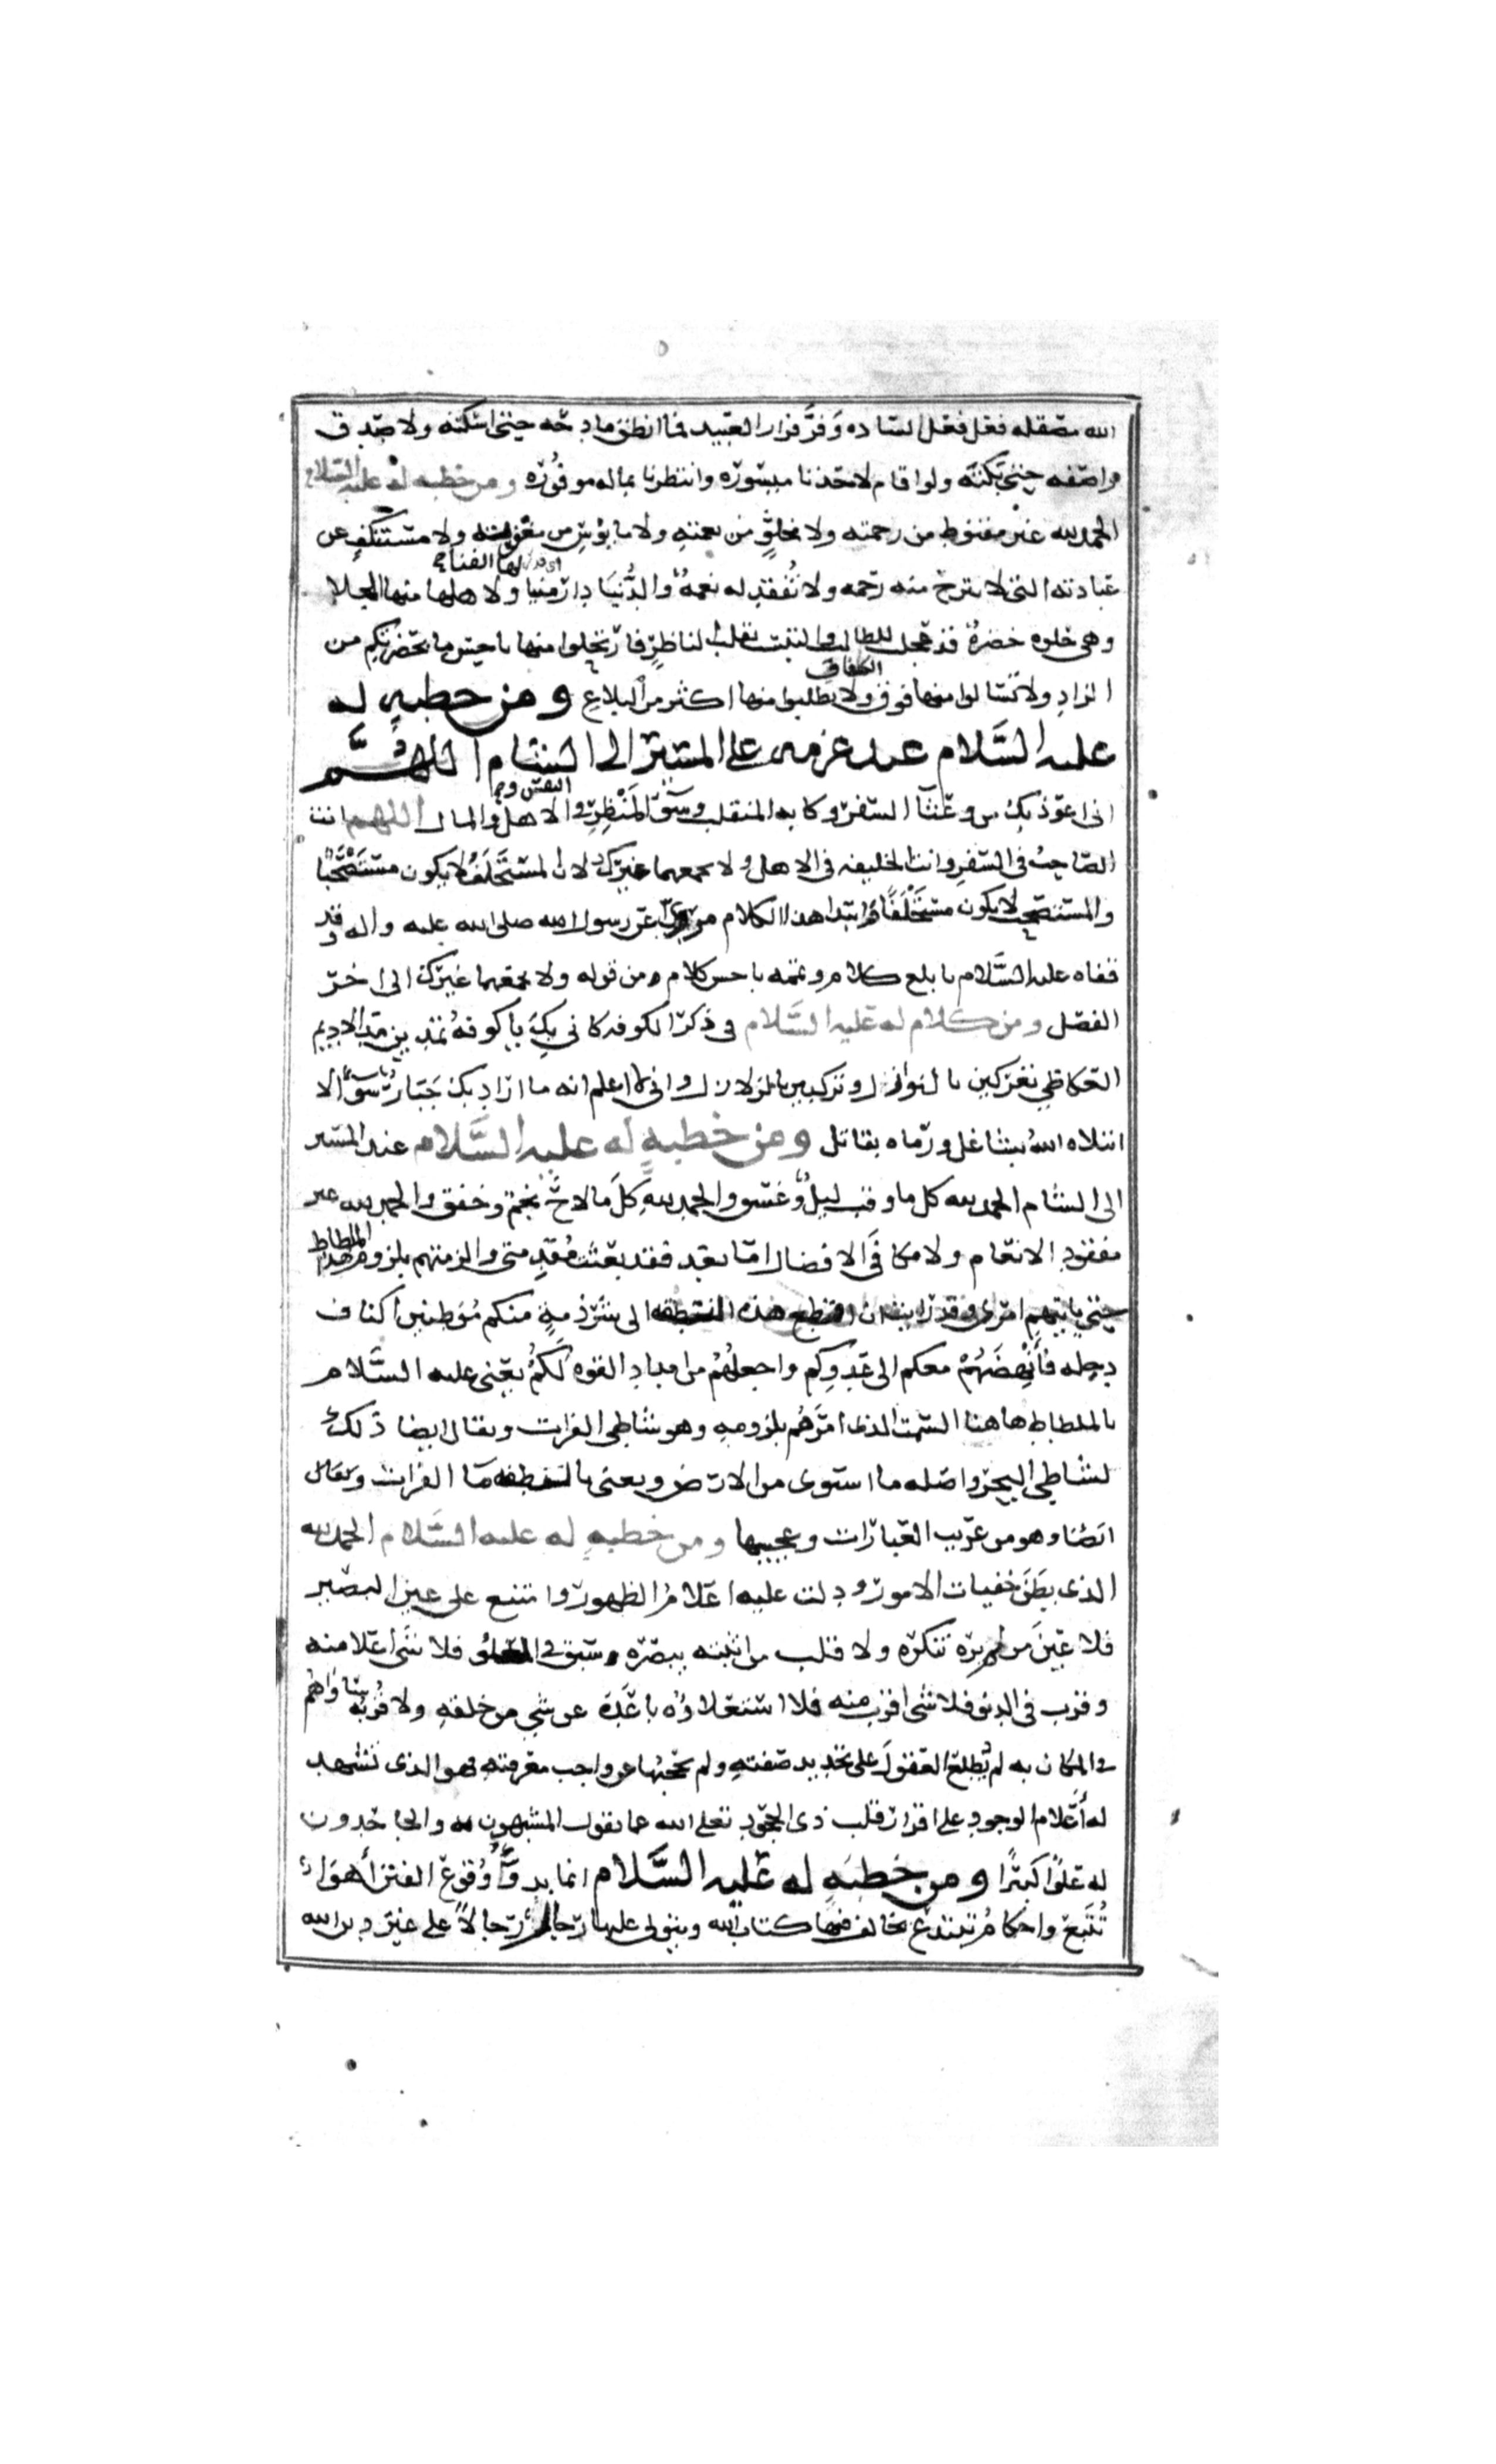 الله مصقله فعل فعل الساده وفر فرار العبيد فما انطق مادحه حتى اسكته ولا صدق
واصفه حتى بكته ولو اقام لاخذنا ميسوره وانتظرنا بماله موفوره ومن خطبه له عليه السلام
الحمد لله غير مقنوط من رحمته ولا مخلو من نعمته ولا مايوس من مغفرته ولا مستنكف عن
عبادته الذى لا تبرح منه رحمه ولا تفقد له نعمه والدنيا دار منى لها الفناء ولاهلها منها الجلا
وهى حلوه خضره قد عجلت للطالب والتبست بقلب الناظر فارتحلوا منها باحسن ما بحضرتكم من
الزاد ولا تسالوا منها فوق الكفاف ولا تطلبوا منها اكثر من البلاغ ومن خطبه له
عليه السلام عند عزمه على المسير الى الشام اللهم
انى اعوذ بك من وعثآ السفر وكابه المنقلب وسوء المنظر فى النفس والاهل والمال اللهم انت
الصاحب فى السفر وانت الخليفه فى الاهل ولا يجمعهما غيرك لان المستخلف لا يكون مستصحبا
والمستصحب لا يكون مستخلفا وابتدا هذا الكلام مروى عن رسول الله صلى الله عليه واله وقد
قفاه عليه السلام بابلغ كلام وتممه باحسن كلام من قوله ولا يجمعهما غيرك الى اخر
الفصل ومن كلام له عليه السلام فى ذكر الكوفه كانى بك يا كوفه تمدين مد الاديم
العكاظى تعركين بالنوازل وتركبين بالزلازل وانى لاعلم انه ما اراد بك جبار سوءا الا
ابتلاه الله بشاغل ورماه بقاتل ومن خطبه له عليه السلام عند المسير
الى الشام الحمد لله كل ما وقب ليل وغسق والحمد لله كل ما لاح نجم وخفق والحمد لله غير
مفقود الانعام ولا مكافى الافضال اما بعد فقد بعثت مقدمتى والزمتهم بلزوم هذا الملطاط
حتى ياتيهم امرى وقد رايت ان اقطع هذه النطفه الى شرذمه منكم موطنين اكناف
دجله فانهضهم معكم الى عدوكم واجعلهم من امداد القوه لكم يعنى عليه السلام
بالملطاط هاهنا السمت الذى امرهم بلزومه وهو شاطى الفرات ويقال ايضا ذلك
لشاطى البحر واصله ما استوى من الارض ويعنى بالنطفه مآ الفرات ويقال
ايضا وهو من غريب العبارات وعجيبها ومن خطبه له عليه السلام الحمد لله
الذى بطن خفيات الامور ودلت عليه اعلام الظهور وامتنع على عين البصير
فلا عين من لم يره تنكره ولا قلب من اثبته يبصره سبق فى العلو فلا شى اعلا منه
وقرب فى الدنو فلا شى اقرب منه فلا استعلاوه باعده عن شى من خلقه ولا قربه ساواهم
فى المكان به لم يطلع العقول على تحديد صفته ولم يحجبها عن واجب معرفته فهو الذى تشهد
له اعلام الوجود على اقرار قلب ذى الجحود تعلى الله عما يقول المشبهون به والجاحدون
له علوا كبيرا ومن خطبه له عليه السلام انما بدو وقوع الفتن اهواء
تتبع واحكام تبتدع يخالف فيها كتاب الله ويتولى عليها رجال رجالا على غير دين الله